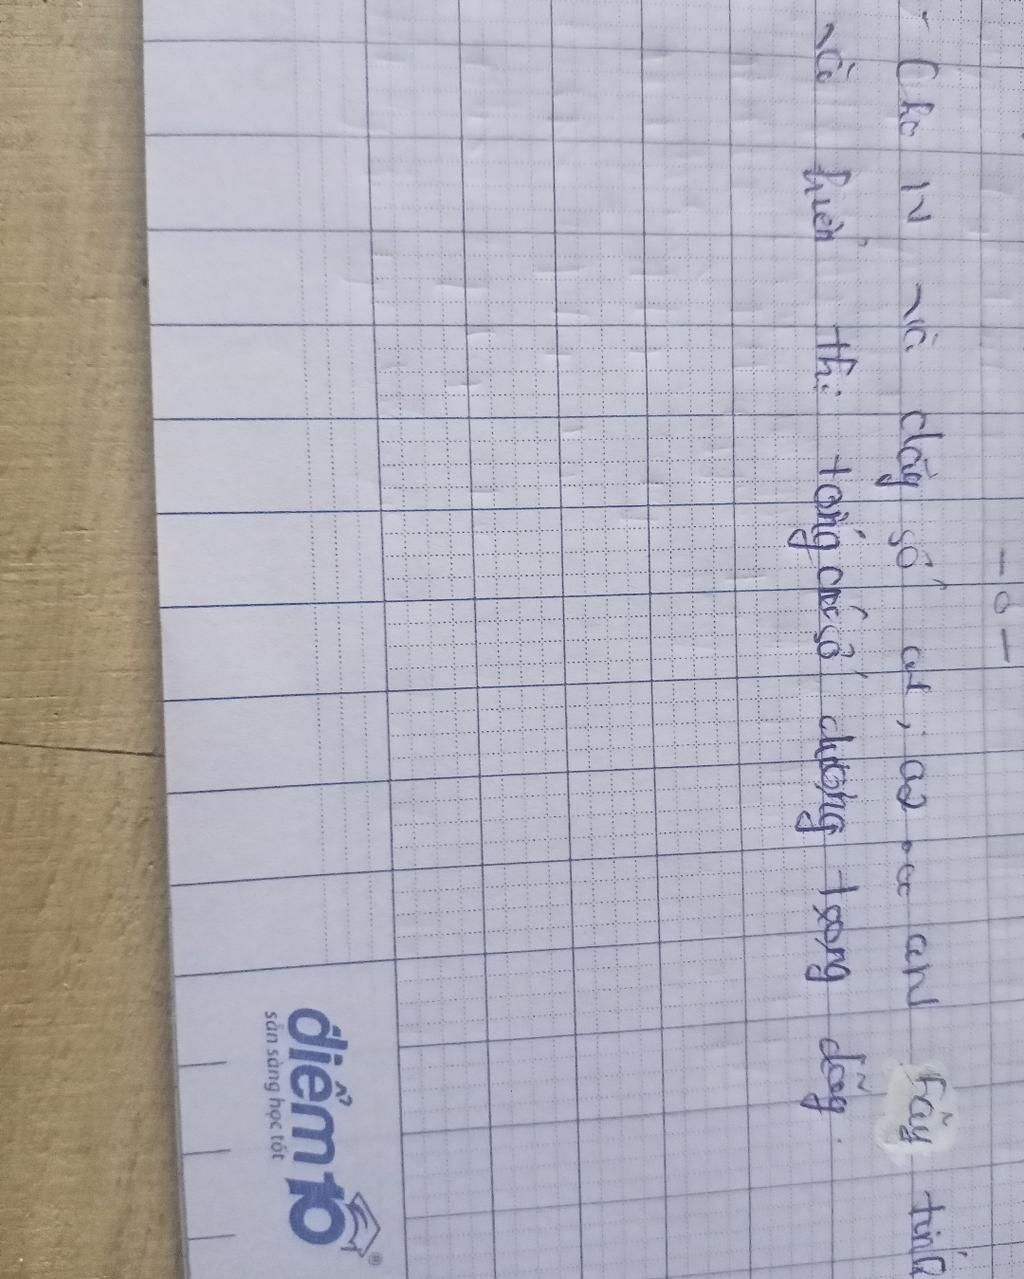 -0-
- Cho N và dãy số a1, a2 ... aN hãy tính
và hiển thị tổng các số dương trong dãy.
điểm10®
sẵn sàng học tốt